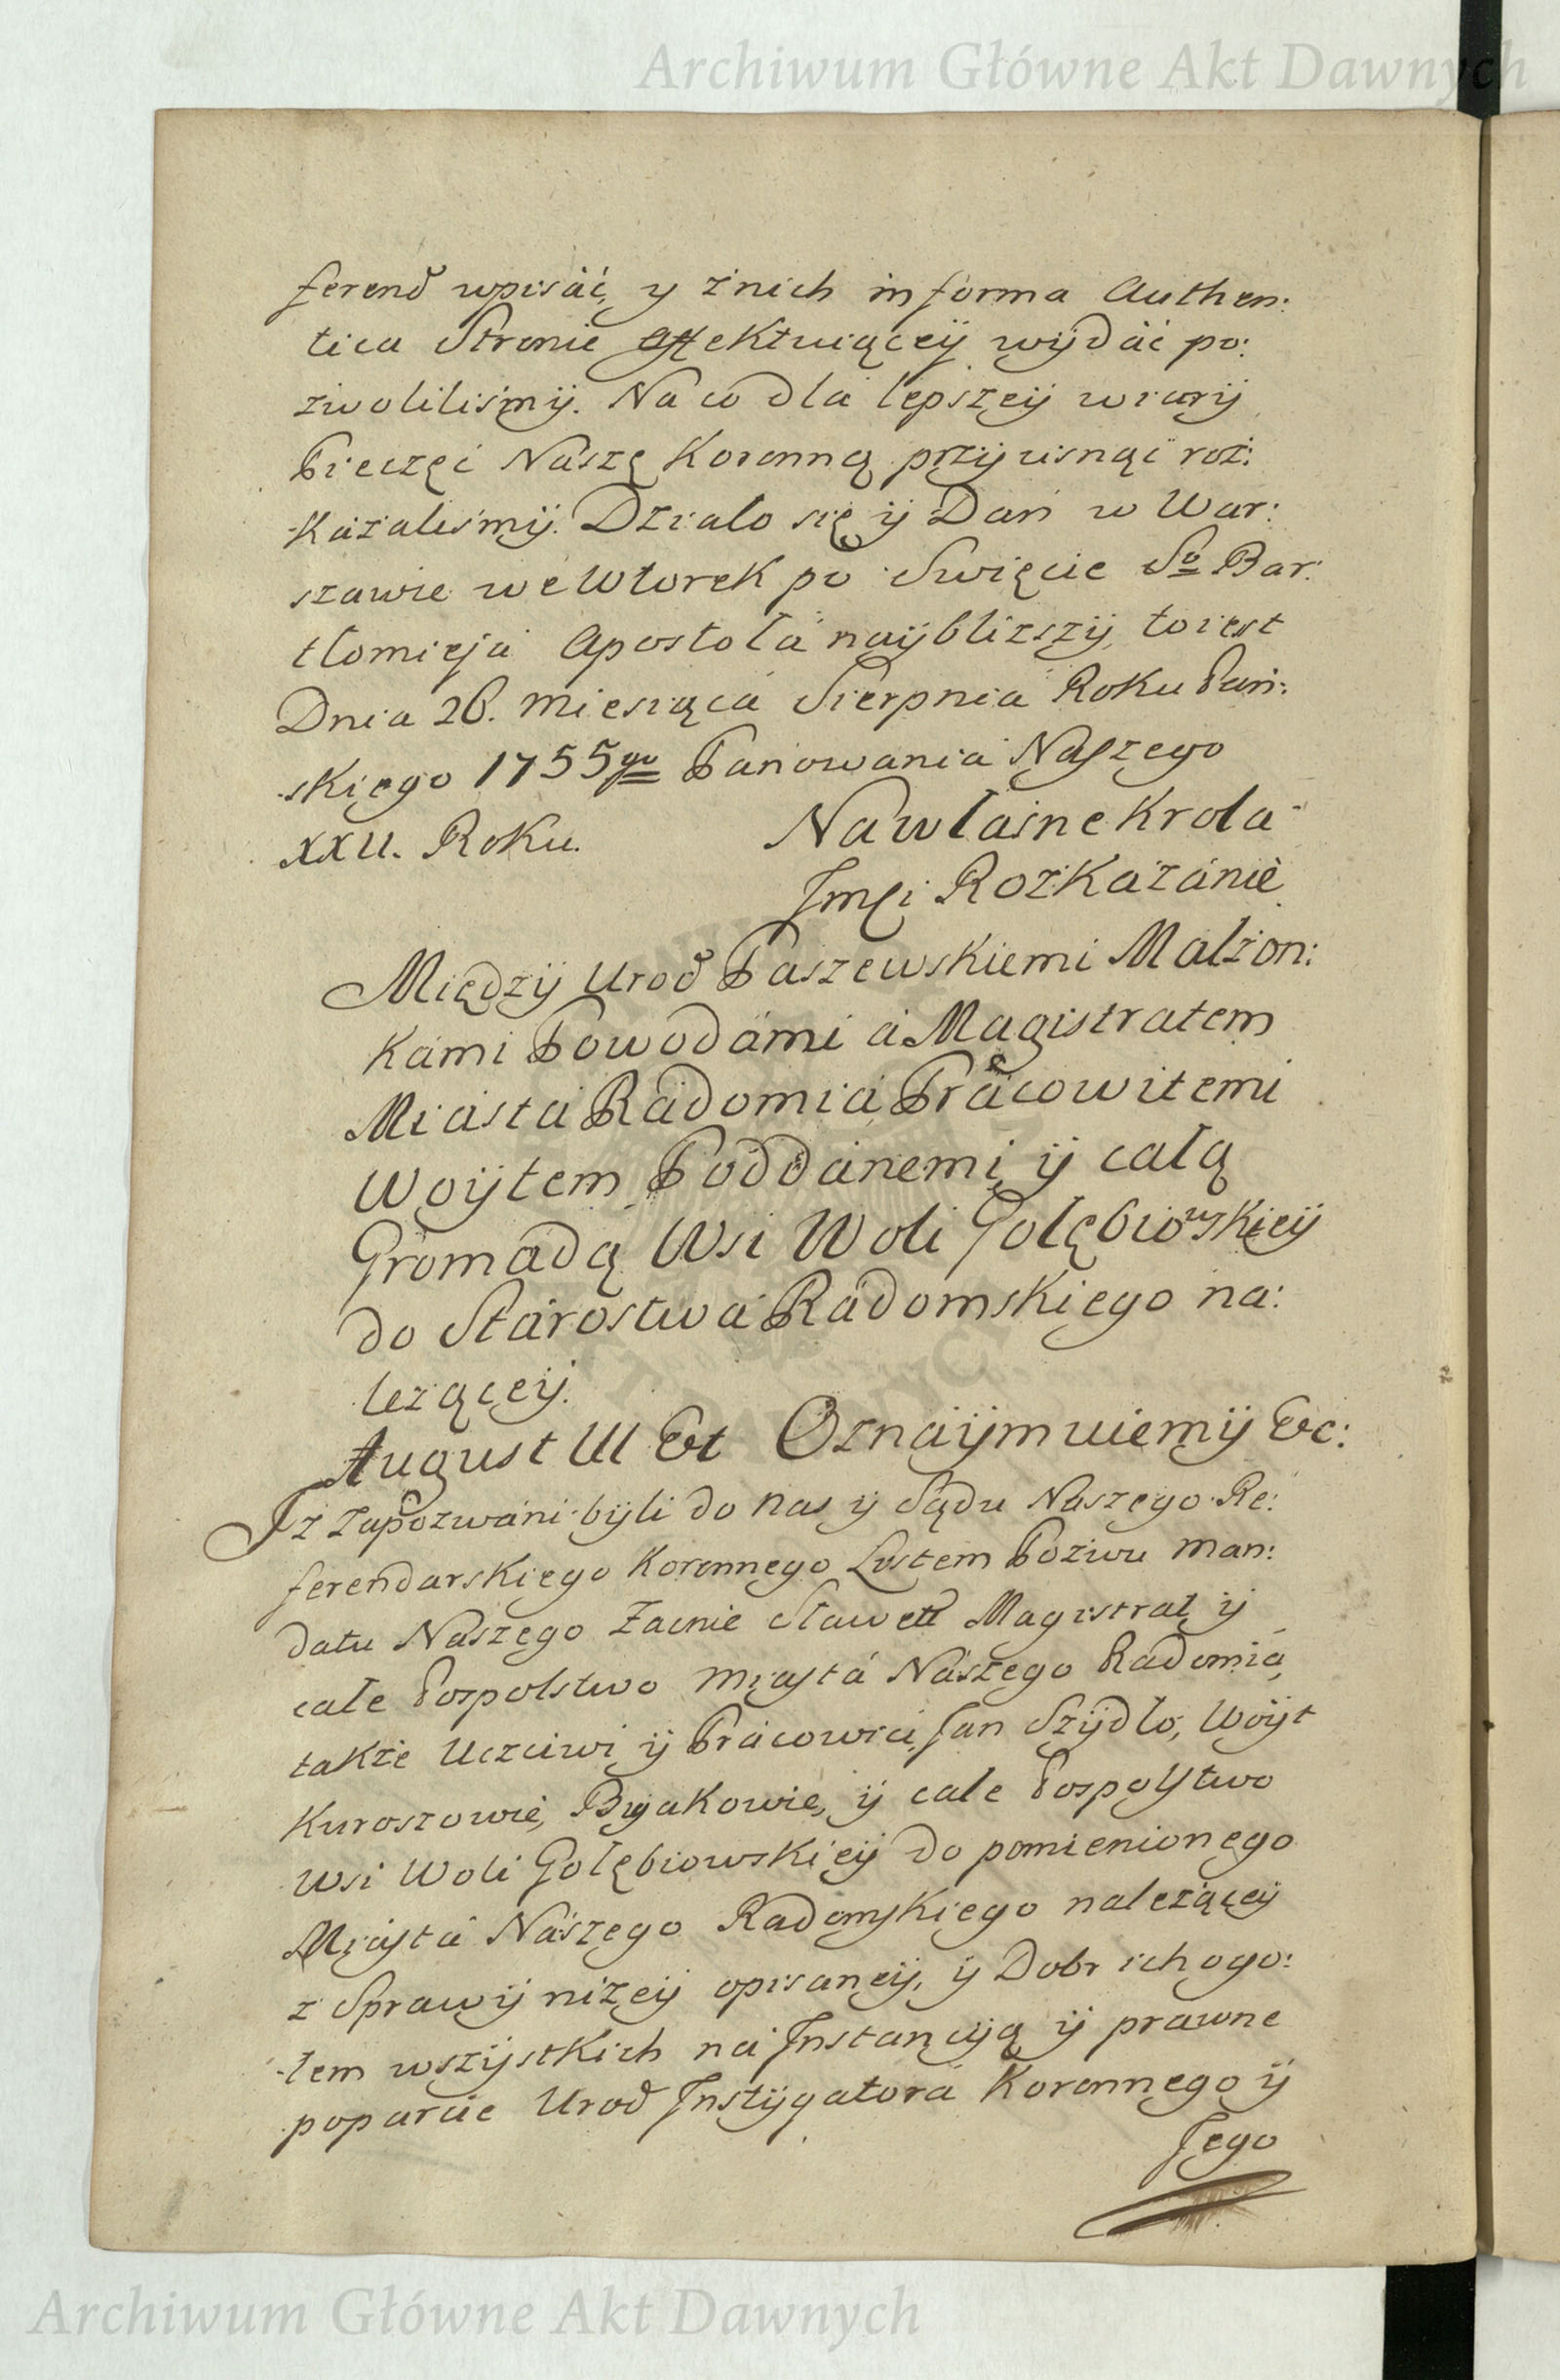 Archiwum Główne Akt Dawnych
ferend wpisać, y z nich in forma Authen:
tica Stronie affektuiącey wydać po:
zwoliliśmy. Na co dla lepszey wiary
Pieczęć Naszę Koronną przycisnąć roz:
kazaliśmy. Działo się y Dan w War:
szawie we Wtorek po Swięcie So Bar:
tłomieja Apostoła nayblizszy, to iest
Dnia 26. Miesiąca Sierpnia Roku Pań:
skiego 1755go Panowania Naszego
XXII. Roku.
Na własne Krola
Jmci Rozkazanie
Między Urod Paszewskiemi Małżon:
kami Powodami a Magistratem
Miasta Radomia Pracowitemi
Woytem Poddanemi y całą
Gromadą Wsi Woli Gołębiowskiey
do Starostwa Radomskiego na:
lezącey.
August III Et Oznaymuiemy &c:
Iz zapozwani byli do nas y Sądu Naszego Re:
ferendarskiego Koronnego Listem Pozwu Man:
datu Naszego Zacnie Sławett Magistrat y
całe Pospolstwo Miasta Naszego Radomia,
także Uczciwi y Pracowici Jan Szydło, Woyt
Kuroszowie, Bąakowie, y całe Pospolstwo
Wsi Woli Gołębiowskiey do pomienionego
Miasta Naszego Radomskiego należącey
z Sprawy niżey opisaney, y Dobr ich ogo:
łem wszystkich na Instancyą y prawne
poparcie Urod Instygatora Koronnego y
Jego
Archiwum Główne Akt Dawnych